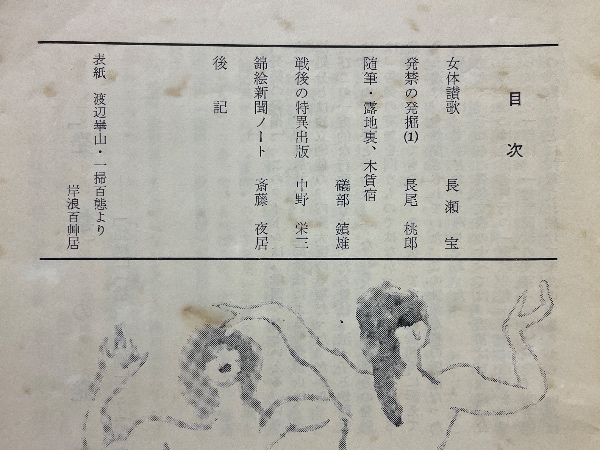 目次
女体讃歌 長瀬 宝
発禁の発掘(1) 長尾 桃郎
随筆・露地裏、木賃宿
礒部 鎮雄
戦後の特異出版 中野 栄三
錦絵新聞ノート 斎藤 夜居
後記
表紙 渡辺崋山・一掃百態より
岸浪百艸居